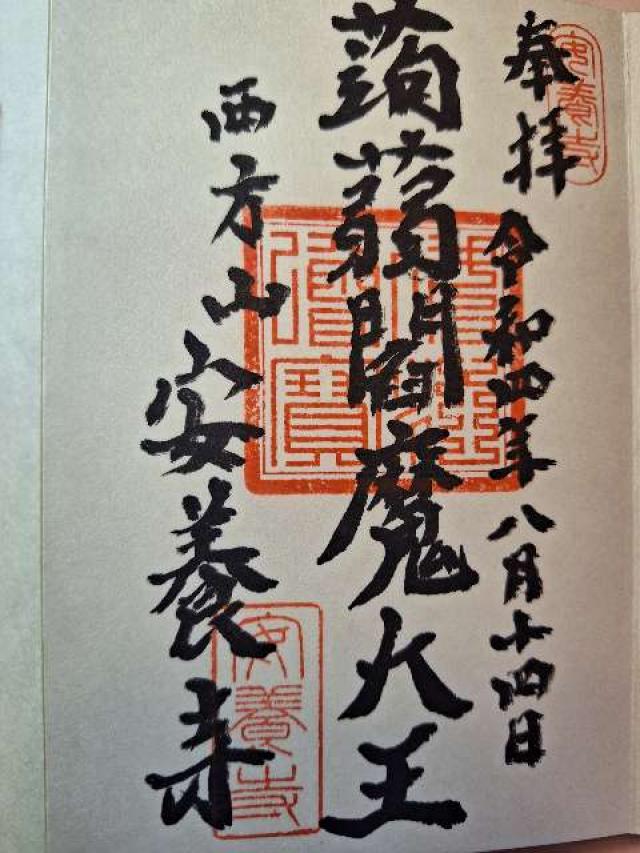 安養寺
奉拝 令和四年八月十四日
蒟蒻閻魔大王
西方山 安養寺
安養寺